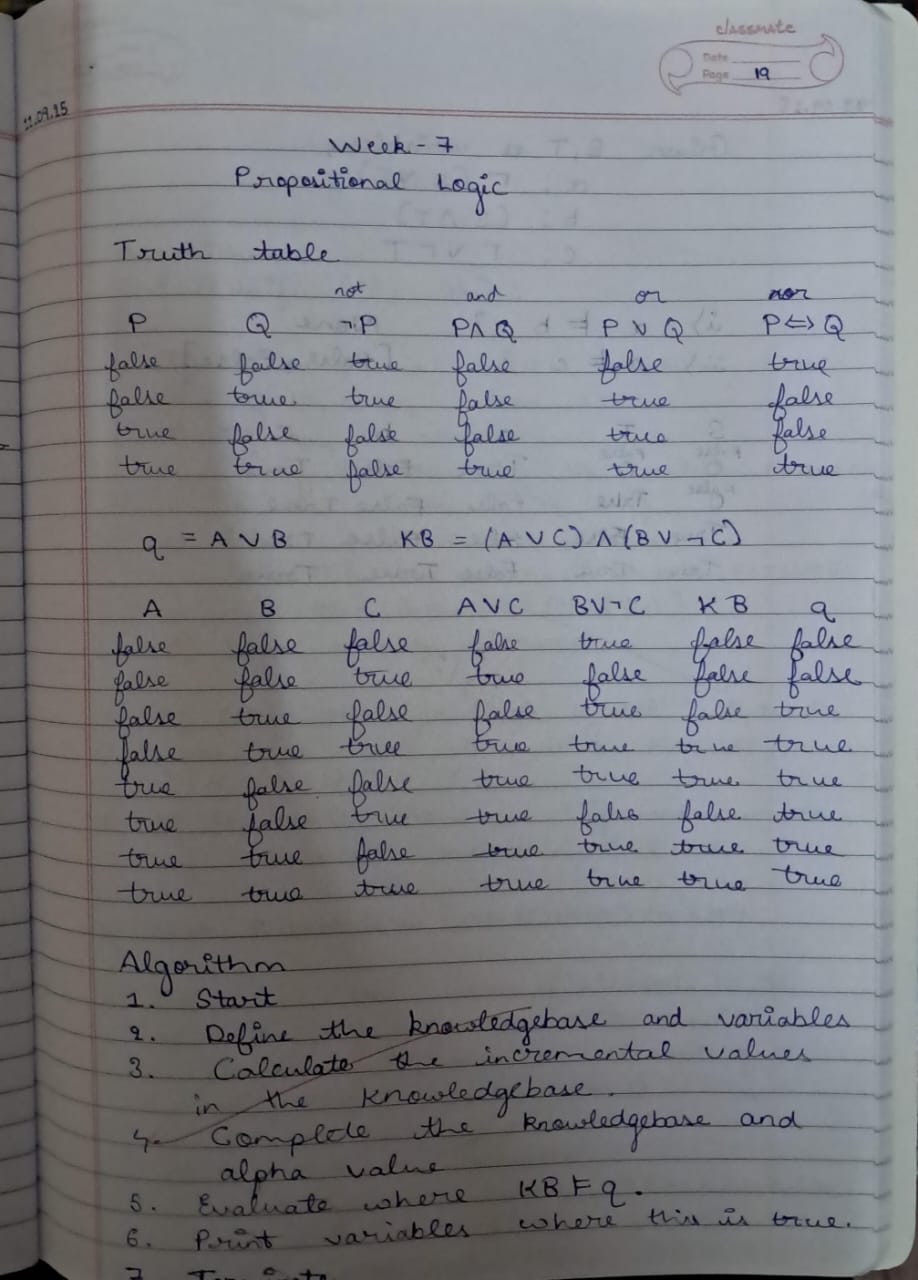 classmate
Date
Page 19
22.09.25
Week - 7
Propositional Logic
Truth table
not and or xor
P Q ¬P P∧Q P ∨ Q P⇔Q
false false true false false true
false true true false true false
true false false false true false
true true false true true true
q = A ∨ B KB = (A ∨ C) ∧ (B ∨ ¬C)
A B C A∨C B∨¬C KB q
false false false false true false false
false false true true false false false
false true false false true false true
false true true true true true true
true false false true true true true
true false true true false false true
true true false true true true true
true true true true true true true
Algorithm
1. Start
2. Define the knowledgebase and variables
3. Calculate the incremental values
in the knowledgebase.
4. Complete the knowledgebase and
alpha value
5. Evaluate where KB ⊨ q.
6. Print variables where this is true.
7.